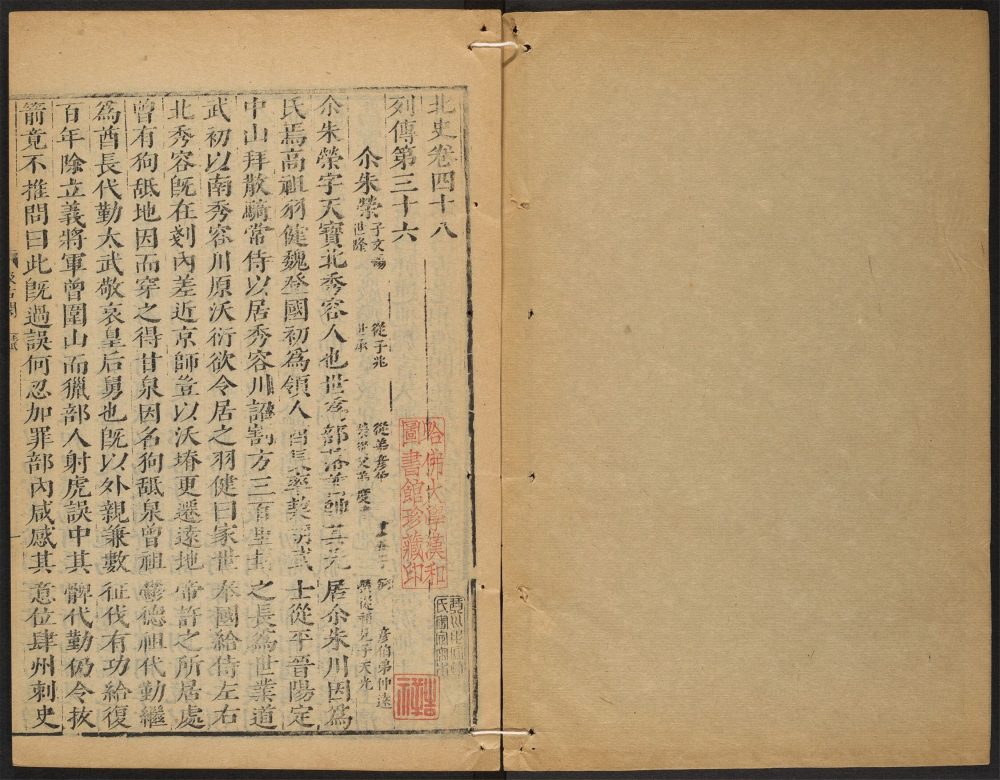 北史卷四十八
列傳第三十六
尒朱榮 子文暢 從子兆 從弟彥伯 彥伯弟仲遠
世隆 世承 榮從父弟度律 榮從祖兄子天光
尒朱榮字天寶北秀容人也世為部落酋帥其先居尒朱川因為
氏焉高祖羽健魏登國初為領人酋長率契胡武士從平晉陽定
中山拜散騎常侍以居秀容川詔割方三百里封之長為世業道
武初以南秀容川原沃衍欲令居之羽健曰家世奉國給侍左右
北秀容旣在剗內差近京師豈以沃塉更遷遠地帝許之所居處
曾有狗舐地因而穿之得甘泉因名狗舐泉曾祖鬱德祖代勤繼
為酋長代勤太武敬哀皇后舅也旣以外親兼數征伐有功給復
百年除立義將軍曾圍山而獵部人射虎誤中其髀代勤仍令拔
箭竟不推問曰此旣過誤何忍加罪部內咸感其意位肆州刺史
哈佛大學漢和
圖書館珍藏印